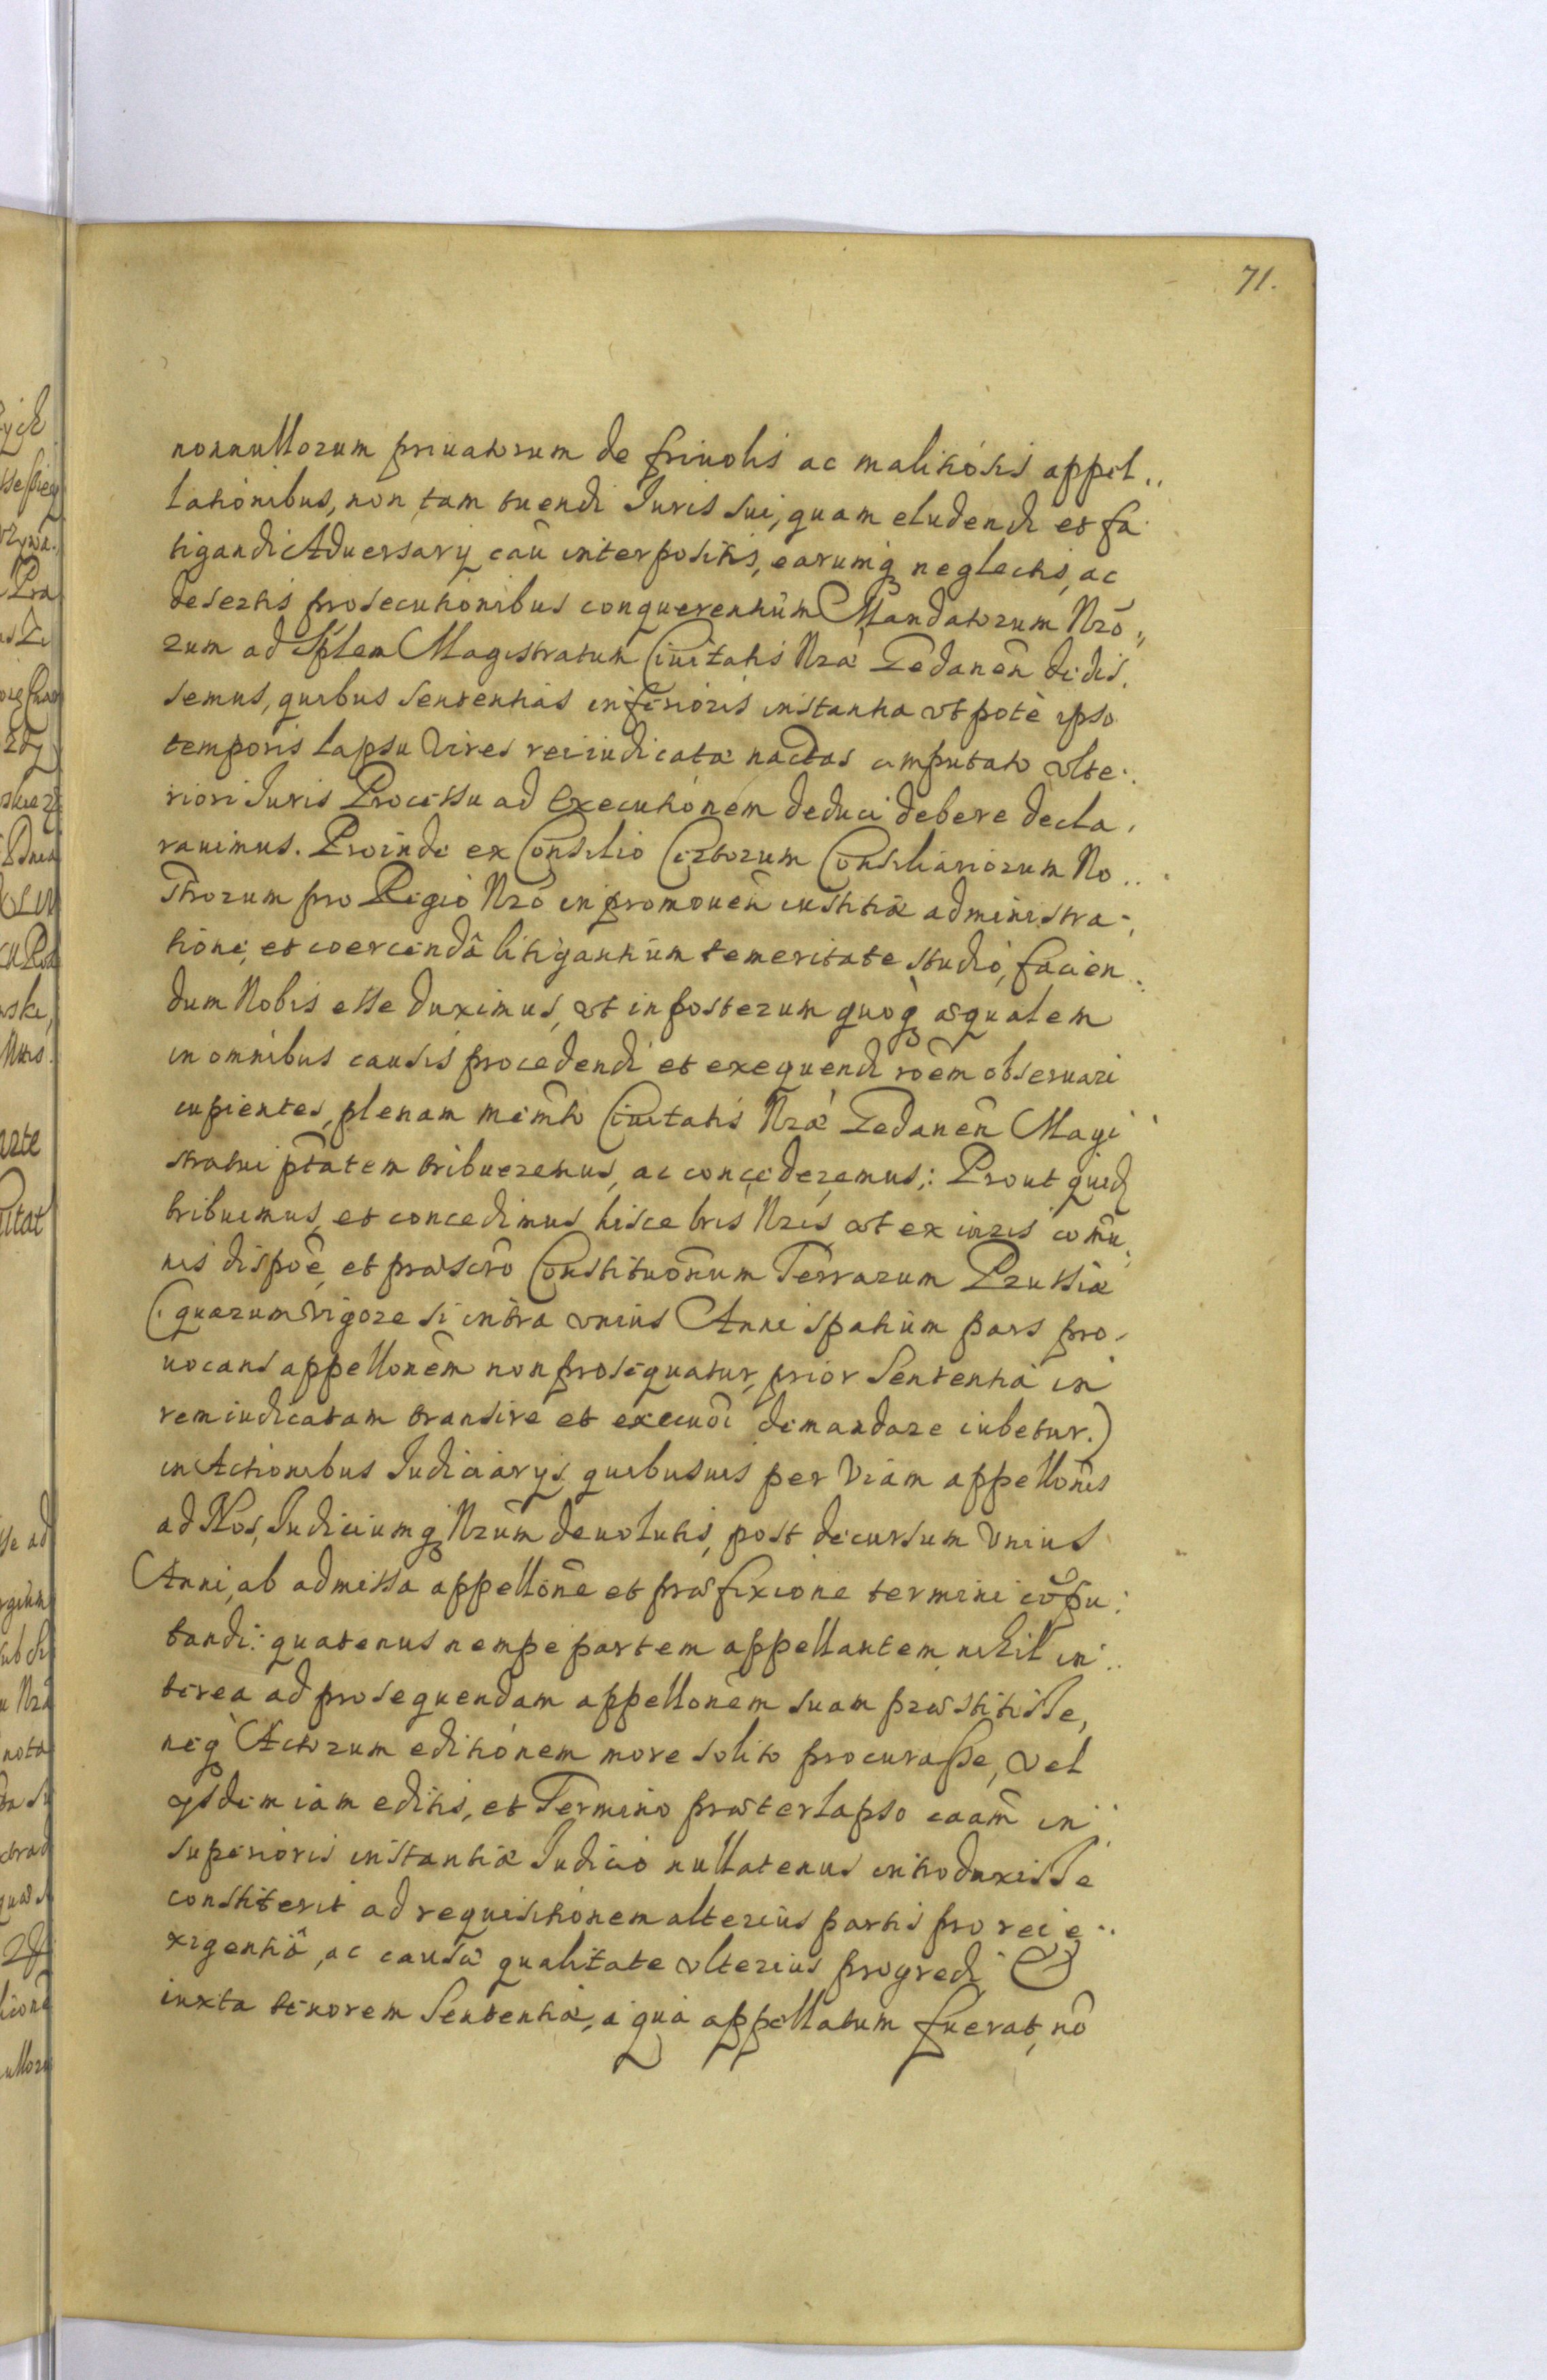 71.
nonnullorum priuatorum de friuolis ac malitiosis appel„
lationibus, non tam tuendi Juris sui, quam eludendi et fa
tigandi Aduersarij cau͠ interpositis, earumq neglectis, ac
desertis prosecutionibus conquerentium Mandatorum Nrō„
rum ad Splem Magistratum Ciuitatis Nræ Gedanen̄ dedis.
semus, quibus sententias inferioris instantiæ vtpotè ipso
temporis lapsu Vires rei iudicatæ nactas amputato vlte.
riori Juris Processu ad Executionem deduci debere decla,
rauimus. Proinde ex Consilio Certorum Consiliariorum No..
strorum pro Regio Nrō in promouen̄ iustitiæ administra,
tione, et coercendâ litigantium temeritate studio, facien.
dum Nobis esse duximus, vt in posterum quoq̀ æqualem
in omnibus causis procedendi et exequendi rōem obseruari
cupientes, plenam mem͠to Ciuitatis Nræ Gedanen̄ Magi
stratui ptātem tribueremus, ac concederemus: Prout quid
tribuimus, et concedimus hisce lris Nris, vt ex iuris com͠u,
nis dispōe, et præscrō Constitūonum Terrarum Prussiæ
(quarum vigore si intra vnius Anni spatium pars pro,
uocans appellonēm non prosequatur, prior Sententia in
rem iudicatam transire et execuōi demandare iubetur.)
in Actionibus Judiciarijs quibusuis per Viam appellōnis
ad Nos, Judiciumq Nrūm deuolutis, post decursum Vnius
Anni, ab admissa appellōne et præfixione termini cōpu:
tandi: quatenus nempe partem appellantem nihil in..
terea ad prosequendam appellonēm suam præstitisse,
neq̀ Actorum editionem more solito procurasse, vel
ijsdem iam editis, et Termino præterlapso caam̄ in
superioris instantiæ Judicio nullatenus introduxisse
constiterit ad requisitionem alterius partis pro rei e..
xigentiâ, ac causæ qualitate vlterius progredi &
iuxta tenorem Sententiæ, a qua appellatum fuerat, nō